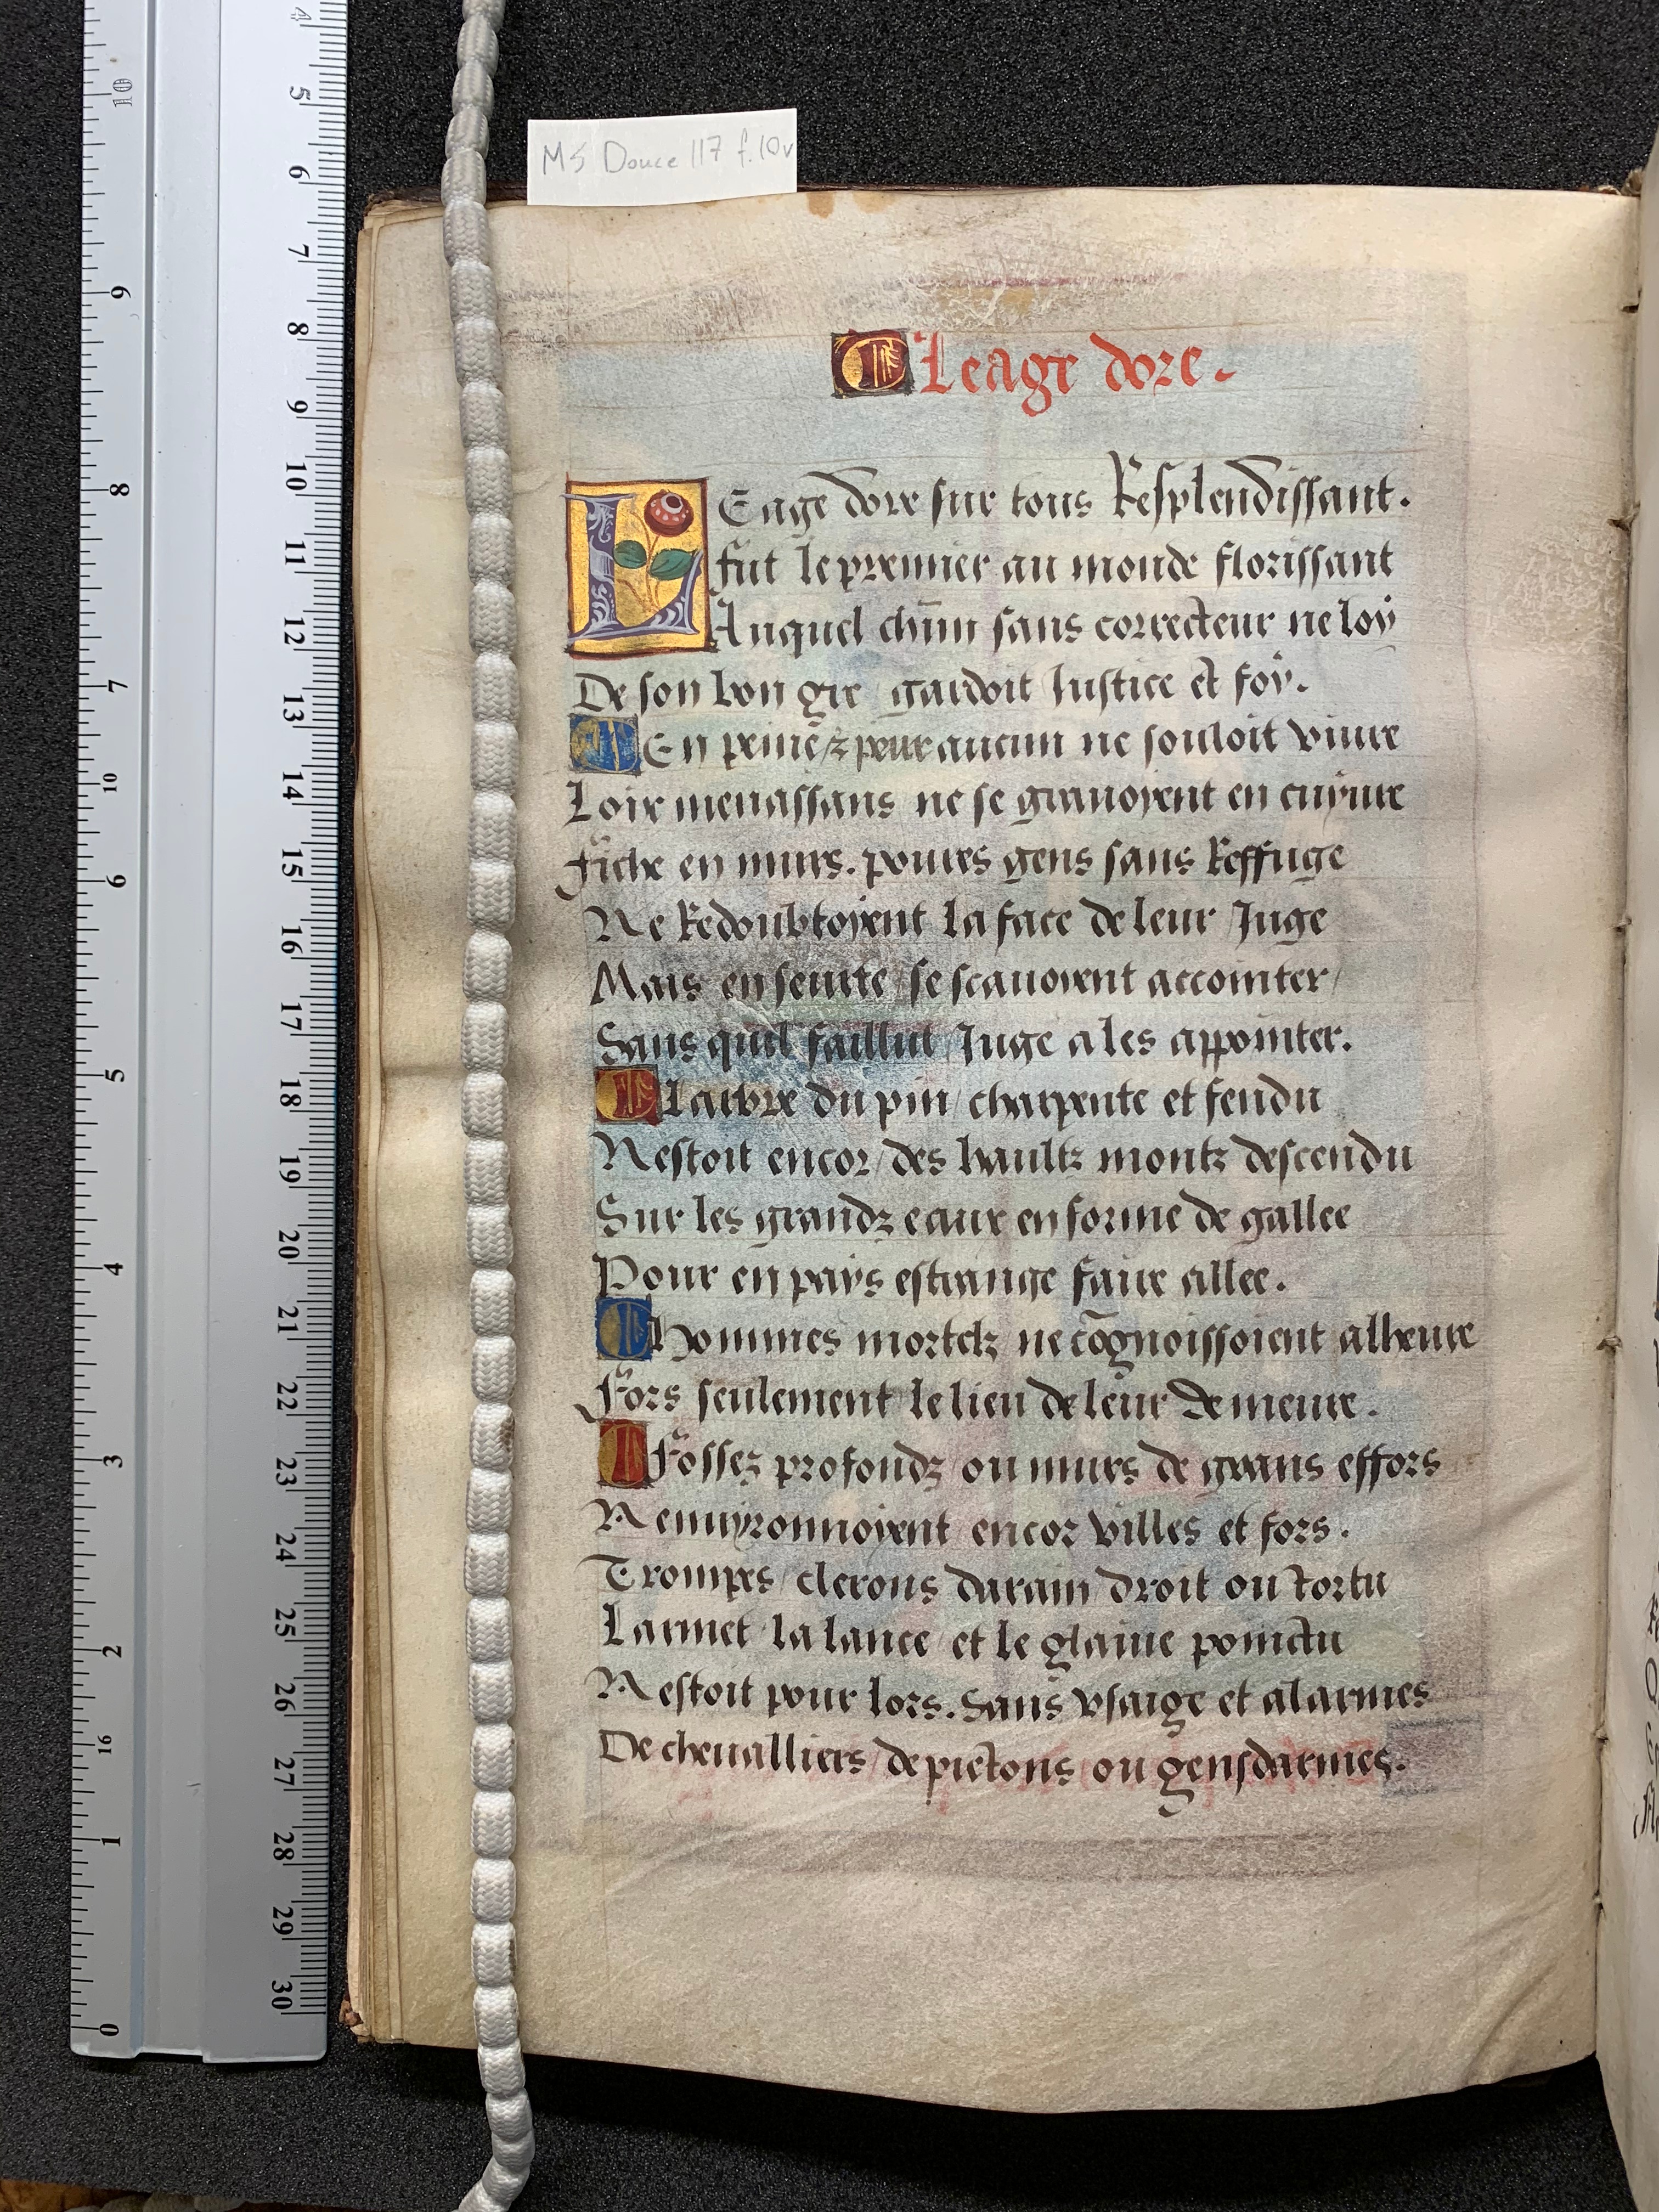 MS Douce 117 f.10v
Leage dore.
LEage dore sur tous Resplendissant.
fut le premier au monde florissant
Auquel chūn sans correcteur ne loy
De son bon gre / gardoit Justice et foy.
En peine / z peur aucun ne souloit viure
Loix menassans ne se grauoyent en cuyure
Fiche en murs. poures gens sans Reffuge
Ne Redoubtoyent la face de leur Juge
Mais en seurte / se scauoyent accointer /
Sans quil faillut Juge a les appointer.
Larbre du pin / charpente et fendu
Nestoit encor / des haultz montz descendu
Sur les grandz eaux en forme de gallee
Pour en pays estrange faire allee.
Hommes mortelz ne cōgnoissoient alheure
Fors seulement le lieu de leur demeure.
Fossez profondz / ou murs de grans effors
Nenuyronnoyent encor villes et fors.
Trompes / clerons darain / droit ou tortu
Larmet / la lance / et le glaiue poinctu
Nestoit pour lors. Sans vsaige et alarmes
De cheualliers / de pietons ou gensdarmes.
4
5
6
7
8
9
10
11
12
13
14
15
16
17
18
19
20
21
22
23
24
25
26
27
28
29
30
10
9
8
7
10
6
5
4
3
2
16
1
0